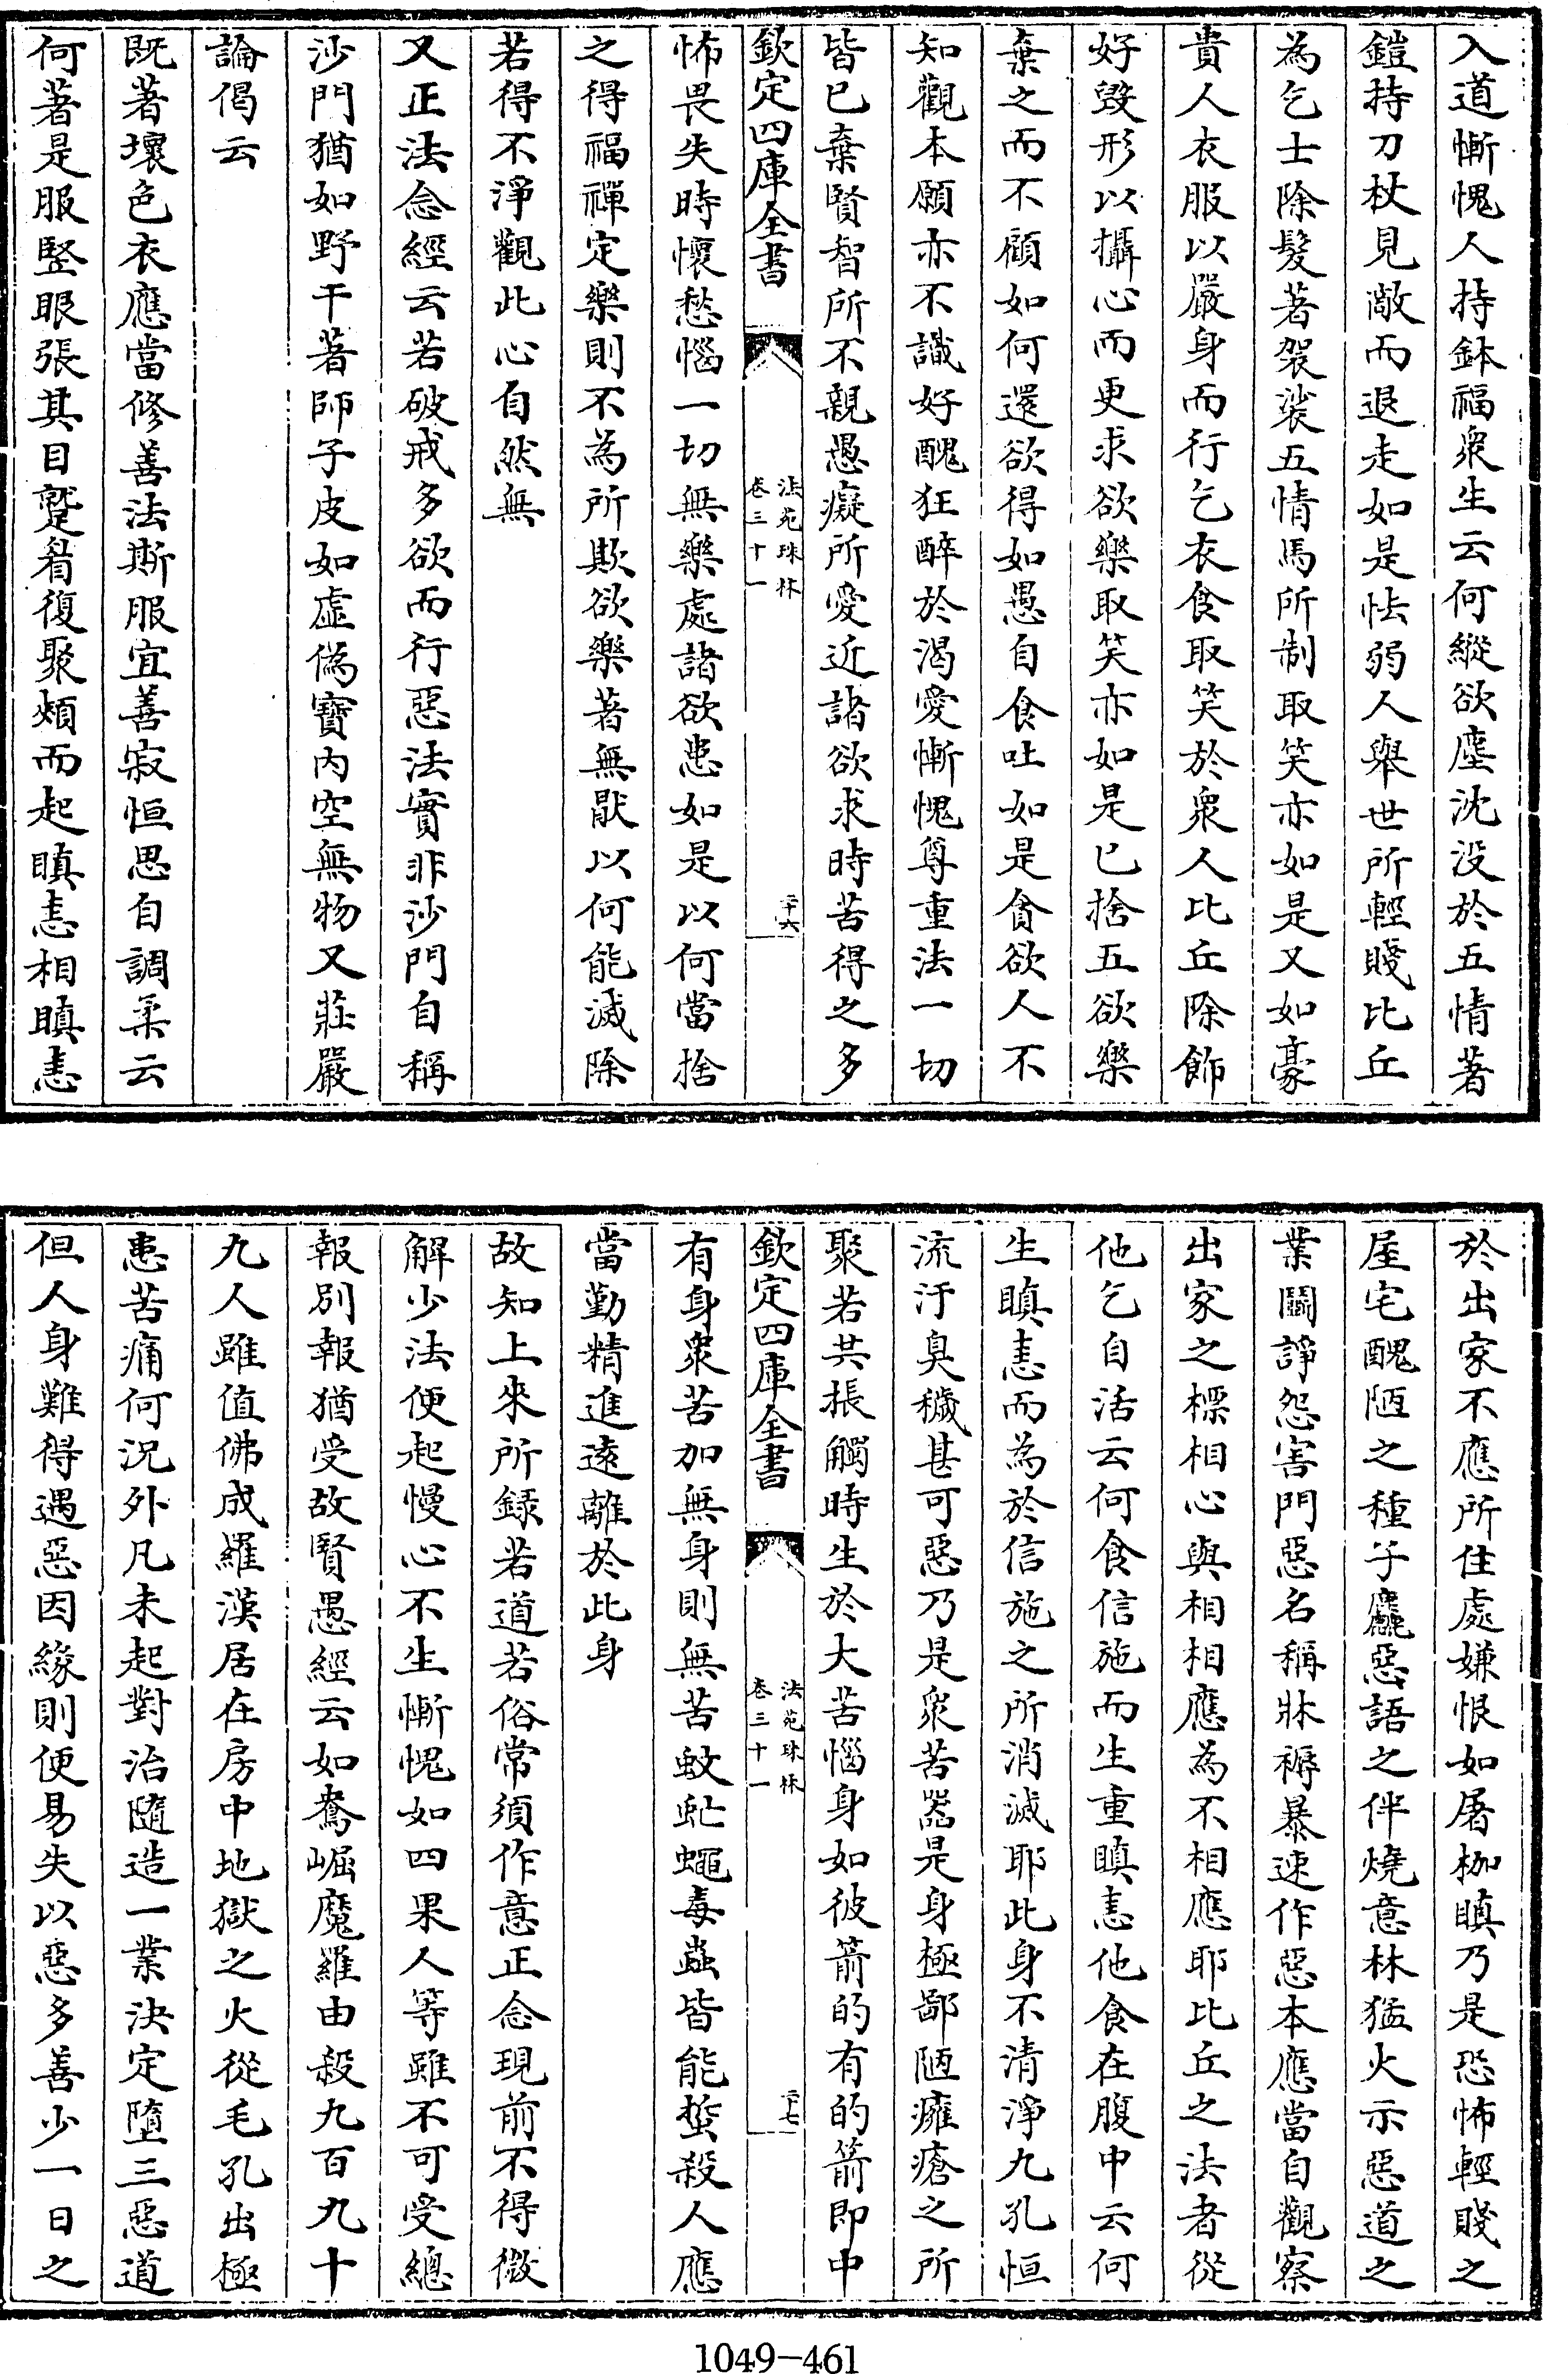 入道慚愧人持鉢福衆生云何縱欲塵沈没於五情著
鎧持刀杖見敵而退走如是怯弱人舉世所輕賤比丘
為乞士除髮著袈裟五情馬所制取笑亦如是又如豪
貴人衣服以嚴身而行乞衣食取笑於衆人比丘除飾
好毀形以攝心而更求欲樂取笑亦如是已捨五欲樂
棄之而不顧如何還欲得如愚自食吐如是貪欲人不
知觀本願亦不識好醜狂醉於渴愛慚愧尊重法一切
皆已棄賢智所不親愚癡所愛近諸欲求時苦得之多
欽定四庫全書
法苑珠林
卷三十一
二十六
怖畏失時懷愁惱一切無樂處諸欲患如是以何當捨
之得福禪定樂則不為所欺欲樂著無猒以何能滅除
若得不淨觀此心自然無
又正法念經云若破戒多欲而行惡法實非沙門自稱
沙門猶如野干著師子皮如虛偽寶内空無物又莊嚴
論偈云
既著壞色衣應當修善法斯服宜善寂恒思自調柔云
何著是服竪眼張其目蹙眉復聚頰而起瞋恚相瞋恚
於出家不應所住處嫌恨如屠枷瞋乃是恐怖輕賤之
屋宅醜陋之種子麤惡語之伴燒意林猛火示惡道之
業鬭諍怨害門惡名稱牀褥暴速作惡本應當自觀察
出家之標相心與相相應為不相應耶比丘之法者從
他乞自活云何食信施而生重瞋恚他食在腹中云何
生瞋恚而為於信施之所消滅耶此身不清淨九孔恒
流汙臭穢甚可惡乃是衆苦器是身極鄙陋癰瘡之所
聚若共掁觸時生於大苦惱身如彼箭的有的箭即中
欽定四庫全書
法苑珠林
卷三十一
二十七
有身衆苦加無身則無苦蚊虻蠅毒蟲皆能螫殺人應
當勤精進遠離於此身
故知上來所録若道若俗常須作意正念現前不得微
解少法便起慢心不生慚愧如四果人等雖不可受總
報别報猶受故賢愚經云如鴦崛魔羅由殺九百九十
九人雖值佛成羅漢居在房中地獄之火從毛孔出極
患苦痛何況外凡未起對治隨造一業決定墮三惡道
但人身難得遇惡因緣則便易失以惡多善少一日之
1049-461